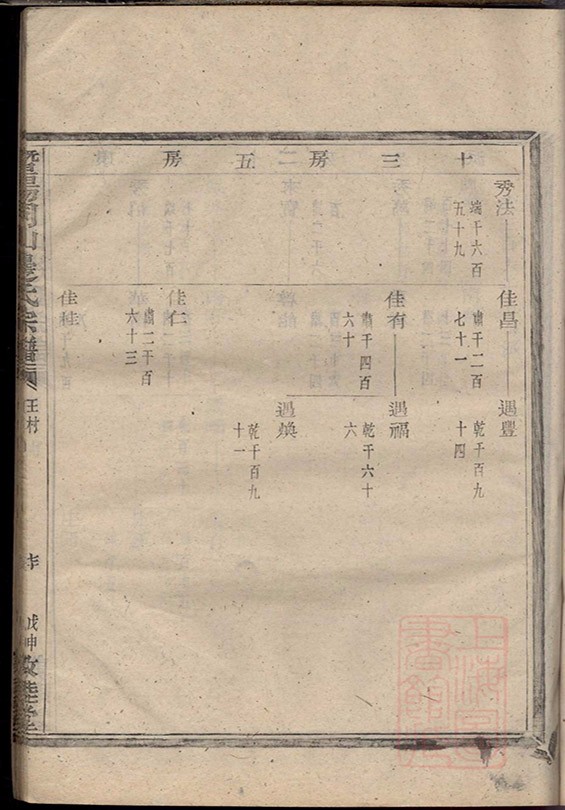 十三房五房
秀法
端千六百
五十九
佳昌
肅千二百
七十一
遇豐
乾千百九
十四
佳有
肅千四百
六十
遇福
乾千六十
六
遇煥
乾千百九
十一
佳仁
肅二千百
六十三
佳桂
山邊氏宗譜
王村
戊申敦睦堂